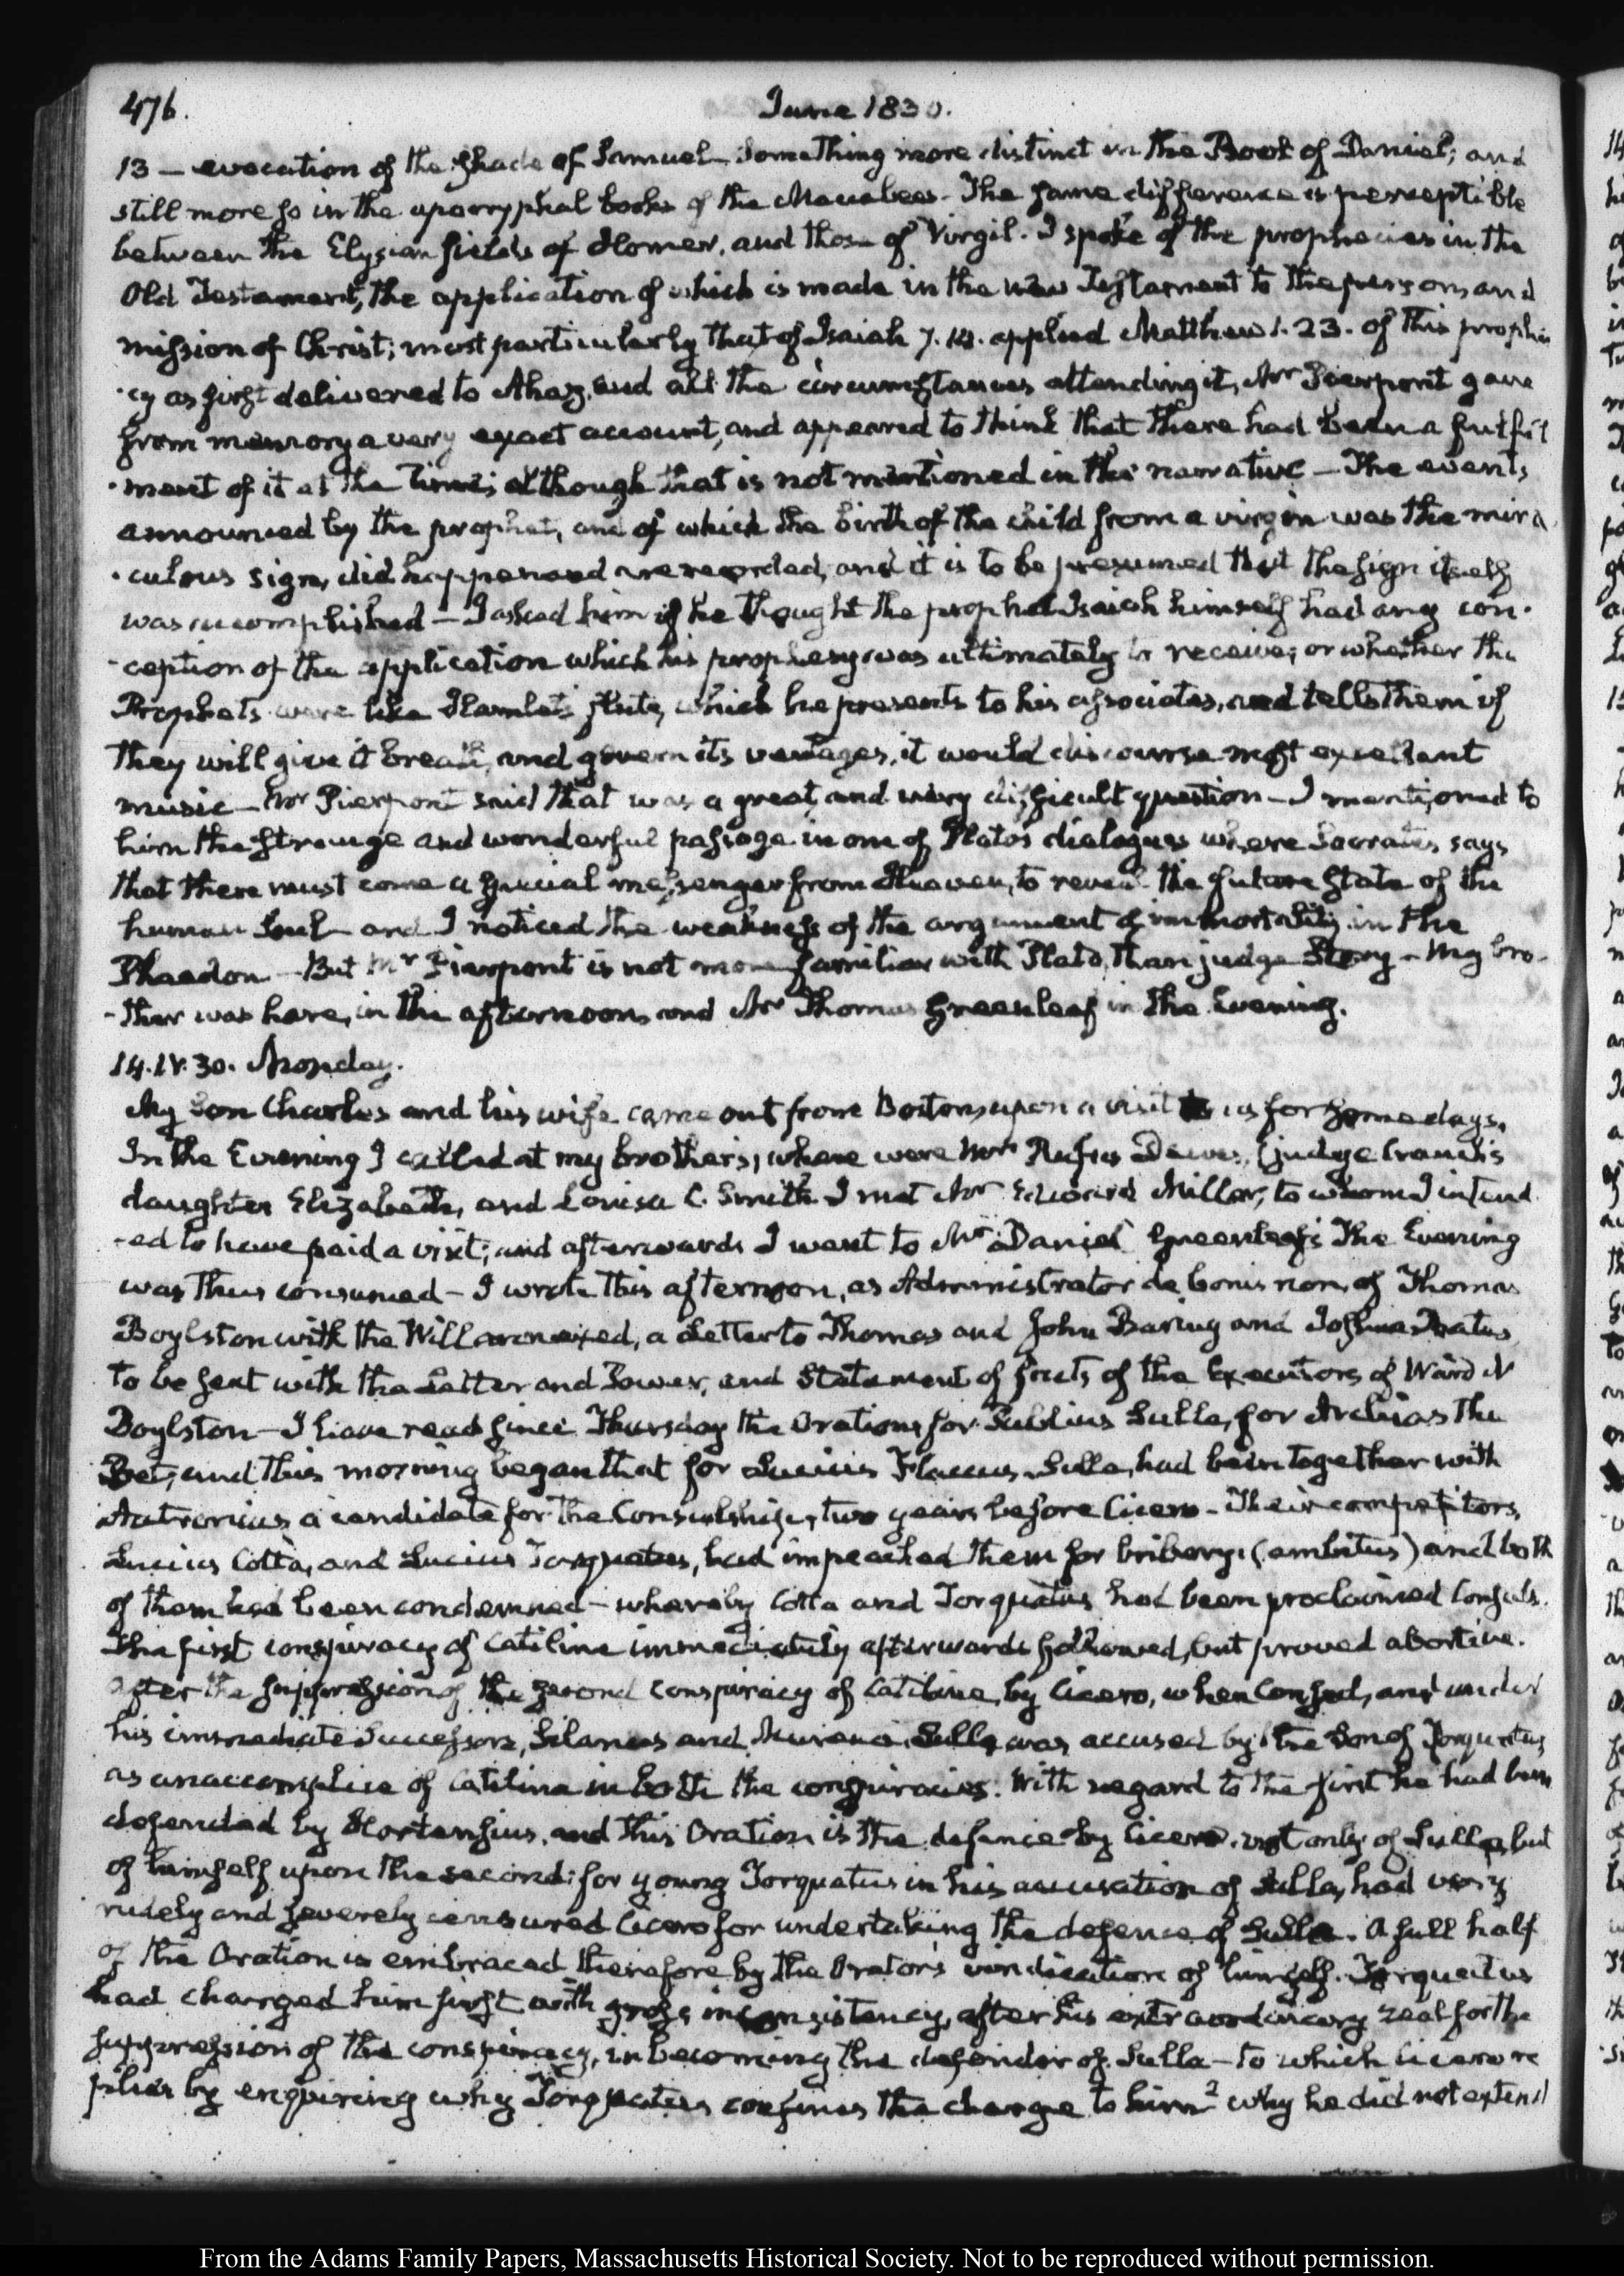 476.
June 1830.
13 — evocation of the Shade of Samuel — Something more distinct in the Book of Daniel; and
still more so in the apocryphal books of the Maccabees — The same difference is perceptible
between the Elysian fields of Homer, and those of Virgil. I spoke of the prophecies in the
Old Testament, the application of which is made in the new Testament to the person, and
mission of Christ; most particularly that of Isaiah 7. 14. applied Matthew 1. 23. of this prophe
-cy as first delivered to Ahaz, and all the circumstances attending it, Mr Pierpont gave
from memory a very exact account, and appeared to think that there had been a fulfil
-ment of it at the time; although that is not mentioned in the narrative — The events
announced by the prophet, and of which the birth of the child from a virgin was the mira
-culous sign, did happen and are recorded, and it is to be presumed that the sign itself
was accomplished — I asked him if he thought the prophet Isaiah himself had any con-
-ception of the application which his prophesy was ultimately to receive; or whether the
Prophets were like Hamlet's flute, which he presents to his associates, and tells them if
they will give it breath, and govern its ventages, it would discourse most excellent
music — Mr Pierpont said that was a great and very difficult question — I mentioned to
him the strange and wonderful passage in one of Plato's dialogues where Socrates says
that there must come a special messenger from Heaven, to reveal the future state of the
human Soul — and I noticed the weakness of the argument of immortality in the
Phaedon — But Mr Pierpont is not more familiar with Plato, than judge Story — My bro-
-ther was here, in the afternoon, and Mr Thomas Greenleaf in the Evening.
14. IV. 30. Monday.
My Son Charles and his wife came out from Boston, upon a visit to us for some days.
In the Evening I called at my brother's, where were Mrs Rufus Dawes, (judge Cranch's
daughter Elizabeth, and Louisa C. Smith. I met Mr Edward Miller, to whom I intend
-ed to have paid a visit; and afterwards I went to Mr Daniel Greenleaf's The Evening
was thus consumed — I wrote this afternoon, as Administrator de bonis non, of Thomas
Boylston with the Will annexed, a Letter to Thomas and John Baring and Joshua Bates
to be sent with the Letter and Power, and Statement of facts of the Executors of Ward N
Boylston — I have read since Thursday the Orations for Publius Sulla, for Archias the
Poet, and this morning began that for Lucius Flaccus. Sulla, had been together with
Autronius a candidate for the Consulship, two years before Cicero — Their competitors,
Lucius Cotta, and Lucius Torquatus, had impeached them for bribery, (ambitus) and both
of them had been condemned — whereby Cotta and Torquatus had been proclaimed Consuls.
The first conspiracy of Catiline immediately afterwards followed, but proved abortive.
After the suppression of the second conspiracy of Catiline, by Cicero, when Consul, and under
his immediate Successors, Silanus and Murena, Sulla was accused by the Son of Torquatus
as an accomplice of Catiline in both the conspiracies. With regard to the first he had been
defended by Hortensius, and this Oration is the defence by Cicero, not only of Sulla, but
of himself upon the second: for young Torquatus in his accusation of Sulla, had very
rudely and severely censured Cicero for undertaking the defence of Sulla. A full half
of the Oration is embraced therefore by the Orator's vindication of himself. Torquatus
had charged him first with gross inconsistency, after his extraordinary zeal for the
suppression of the conspiracy, in becoming the defender of Sulla — to which Cicero re
plies by enquiring why Torquatus confines the charge to him? why he did not extend
From the Adams Family Papers, Massachusetts Historical Society. Not to be reproduced without permission.